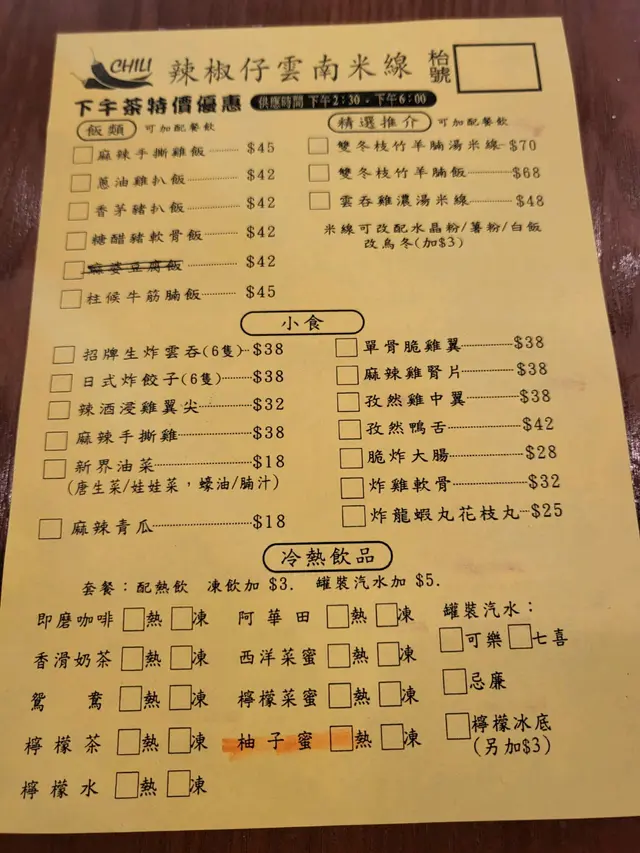 CHILI 辣椒仔雲南米線 枱號
下午茶特價優惠 供應時間 下午2:30 - 下午6:00
飯類 可加配餐飲
麻辣手撕雞飯 $45
蔥油雞扒飯 $42
香茅豬扒飯 $42
糖醋豬軟骨飯 $42
麻婆豆腐飯 $42
柱候牛筋腩飯 $45
精選推介 可加配餐飲
雙冬枝竹羊腩湯米線 $70
雙冬枝竹羊腩飯 $68
雲吞雞濃湯米線 $48
米線可改配水晶粉/薯粉/白飯
改烏冬(加$3)
小食
招牌生炸雲吞(6隻) $38
日式炸餃子(6隻) $38
辣酒浸雞翼尖 $32
麻辣手撕雞 $38
新界油菜 $18
(唐生菜/娃娃菜，蠔油/腩汁)
麻辣青瓜 $18
單骨脆雞翼 $38
麻辣雞腎片 $38
孜然雞中翼 $38
孜然鴨舌 $42
脆炸大腸 $28
炸雞軟骨 $32
炸龍蝦丸花枝丸 $25
冷熱飲品
套餐：配熱飲 凍飲加 $3. 罐裝汽水加 $5.
即磨咖啡 熱 凍
香滑奶茶 熱 凍
鴛鴦 熱 凍
檸檬茶 熱 凍
檸檬水 熱 凍
阿華田 熱 凍
西洋菜蜜 熱 凍
檸檬菜蜜 熱 凍
柚子蜜 熱 凍
罐裝汽水：
可樂 七喜
忌廉
檸檬冰底
(另加$3)